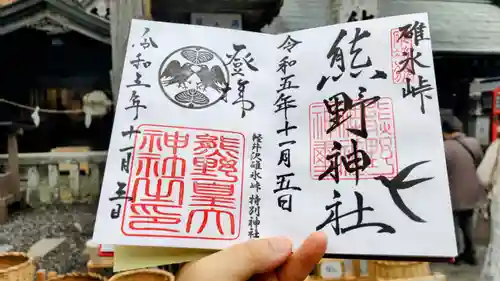 碓氷峠
熊野神社
令和五年十一月五日
登拝
熊野皇大
神社之印
軽井沢碓氷峠 特別神社
令和五年十一月五日